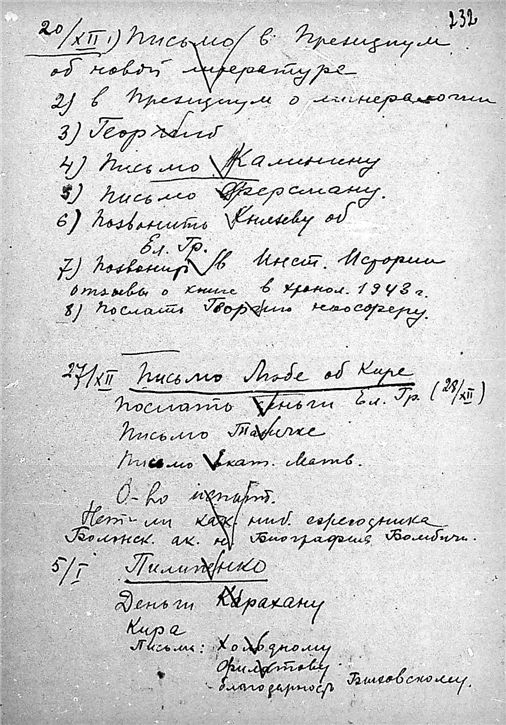 232
20/XII 1) Письмо в Президиум
об новой литературе
2) в Президиум о минералогии
3) Георгию
4) Письмо Калинину
5) Письмо Ферсману.
6) Позвонить Князеву об
Ел. Гр.
7) Позвонить в Инст. Истории
отзывы о книге в хронол. 1943 г.
8) Послать Георгию ноосферу.
27/XII Письмо Любе об Кире
Послать деньги Ел. Гр. (28/XII)
Письмо Таничке
Письмо Екат. Матв.
О-во испыт.
Нет-ли как. ниб. ежегодника
Болонск. ак. н. Биография Бомбичи.
5/I Пилипенко
Деньги Карахану
Кира
Письма: Холодному
Филатову
благодарность